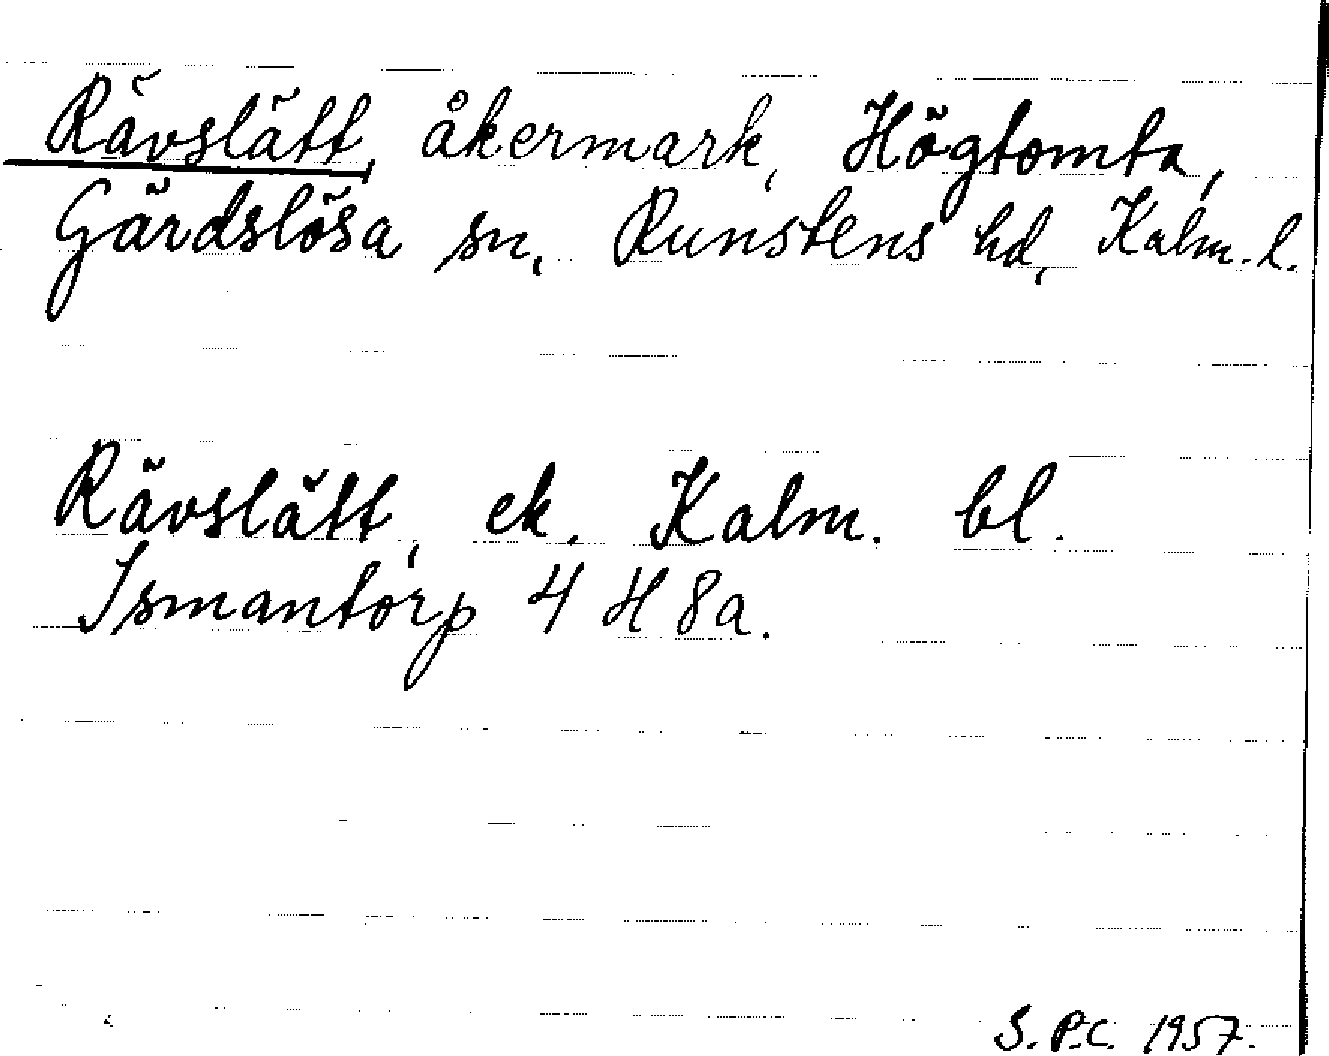 Rävslätt, åkermark, Högtomta,
Gärdslösa sn, Runstens hd, Kalm. l.
Rävslätt, ek. Kalm. bl.
Ismantorp 4 H 8a.
S.P.C. 1957.